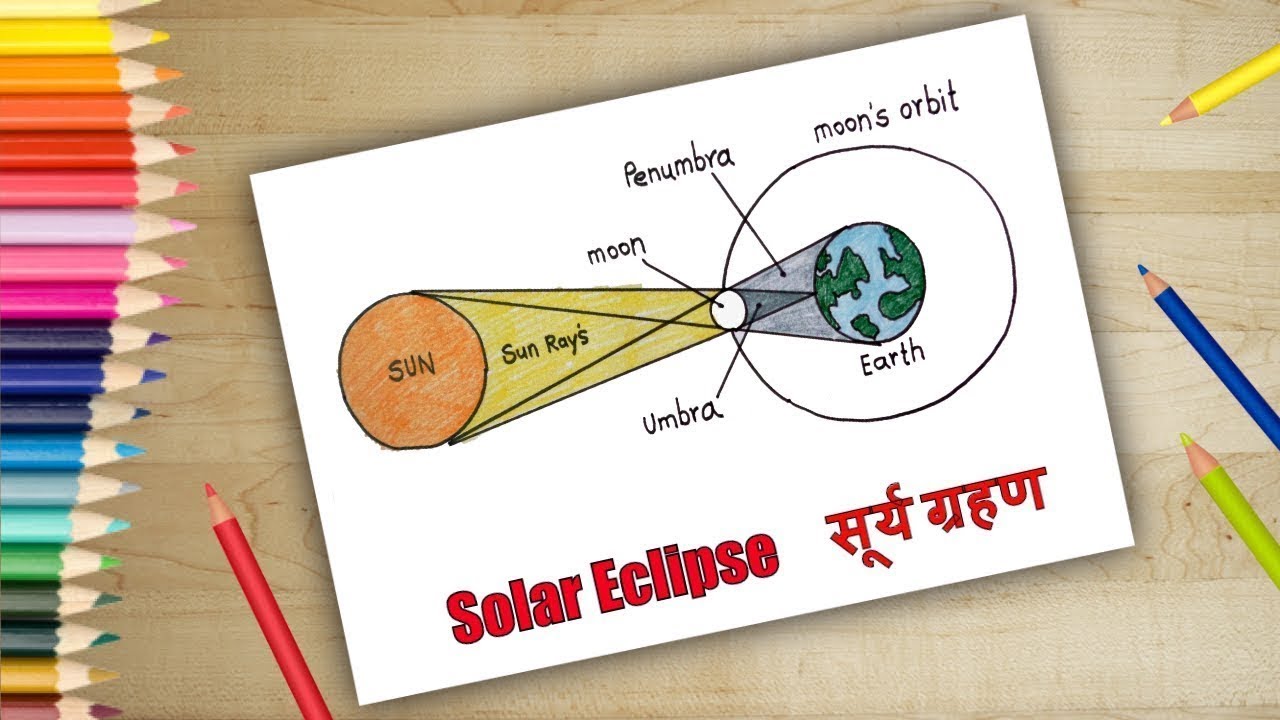 moon's orbit
Penumbra
moon
SUN
Sun Ray's
Earth
Umbra
Solar Eclipse सूर्य ग्रहण